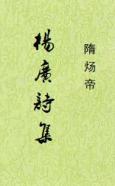 隋炀帝
楊廣詩集